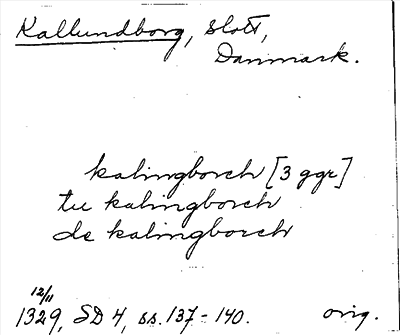 Kallundborg, slott,
Danmark.
kalingborch [3 ggr]
tu kalingborch
de kalingborch
12/11
1329, SD 4, ss. 137-140. orig.